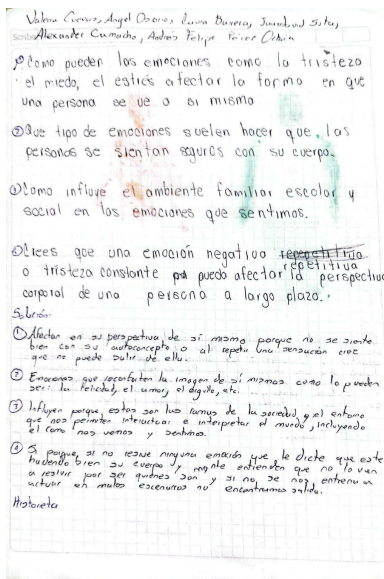 Valeria Cuervo, Angel Osorio, Laura Barrera, Juan David Sota,
Alexander Camacho, Andrés Felipe Pérez Ochoa
① Como pueden las emociones como la tristeza
el miedo, el estrés afectar la forma en que
una persona se ve a si mismo
② Que tipo de emociones suelen hacer que las
personas se sientan seguros con su cuerpo.
③ Como influye el ambiente familiar escolar y
social en las emociones que sentimos.
④ Crees que una emoción negativa repetitiva
o tristeza constante pueda afectar la perspectiva
corporal de una persona a largo plazo.
Solución:
① Afectan en su perspectiva de sí mismo porque no se siente
bien con su autoconcepto o al repetir una sensación cree
que no puede salir de ella.
② Emociones que reconforten la imagen de sí mismos como lo pueden
ser: la felicidad, el amor, el orgullo, etc.
③ Influyen porque, estas son las ramas de la sociedad y el entorno
que nos permiten interactuar e interpretar el mundo, incluyendo
el como nos vemos y sentimos.
④ Si porque, si no recive ninguna emoción que le dicte que este
haciendo bien su cuerpo y mente entienden que no lo van
a recivir por ser quienes son y si no se nos entrena a
actuar en malos escenarios no encontramos salida.
Historieta